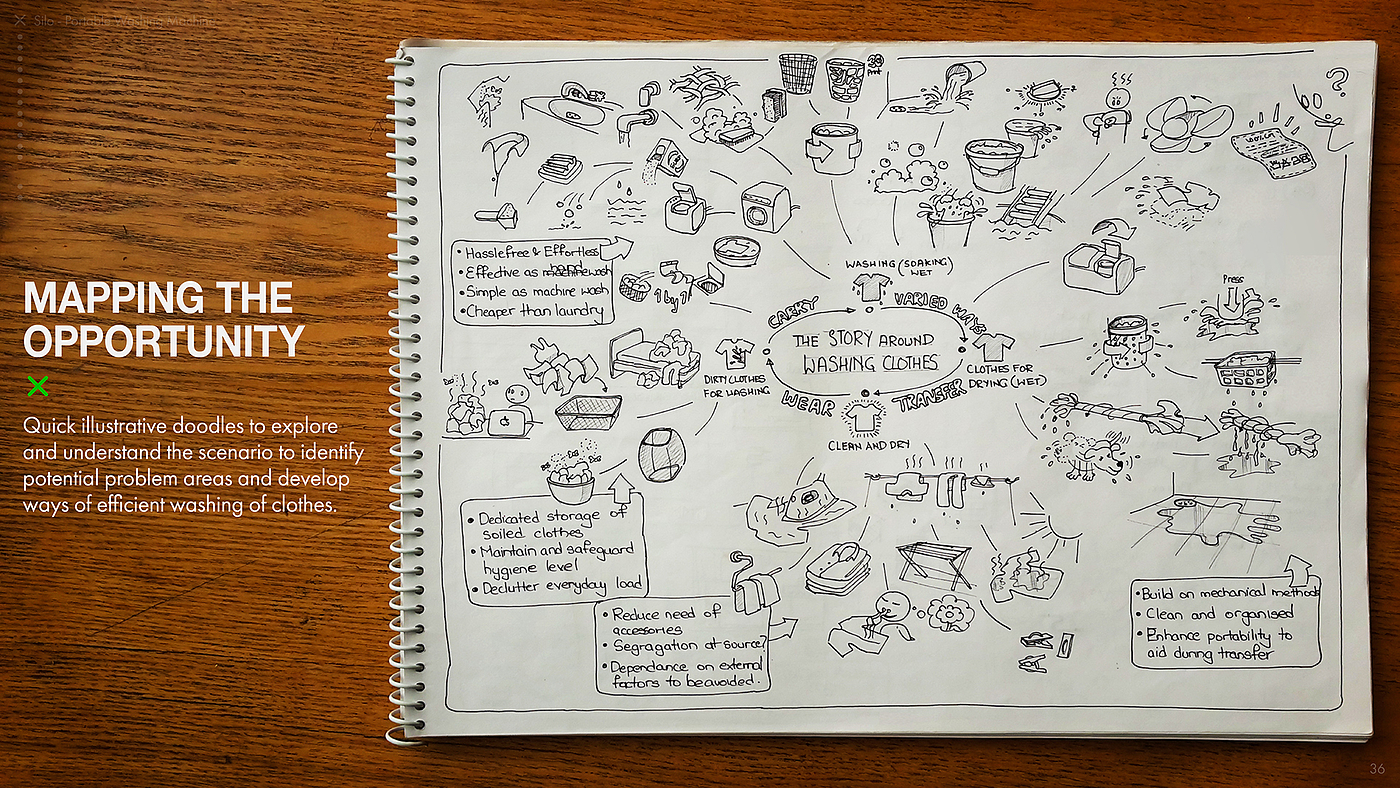 Silo - Portable Washing Machine
MAPPING THE
OPPORTUNITY
Quick illustrative doodles to explore
and understand the scenario to identify
potential problem areas and develop
ways of efficient washing of clothes.
• Hasslefree & Effortless
hand
• Effective as machine wash
• Simple as machine wash
• Cheaper than laundry
1 by 1
WASHING (SOAKING)
WET
CARRY
VARIED WAYS
THE STORY AROUND
WASHING CLOTHES
DIRTY CLOTHES
FOR WASHING
CLOTHES FOR
DRYING (WET)
WEAR
TRANSFER
CLEAN AND DRY
Press
• Dedicated storage of
soiled clothes
• Maintain and safeguard
hygiene level
• Declutter everyday load
• Reduce need of
accessories
• Segragation at source?
• Dependance on external
factors to be avoided.
• Build on mechanical methods
• Clean and organised
• Enhance portability to
aid during transfer
36